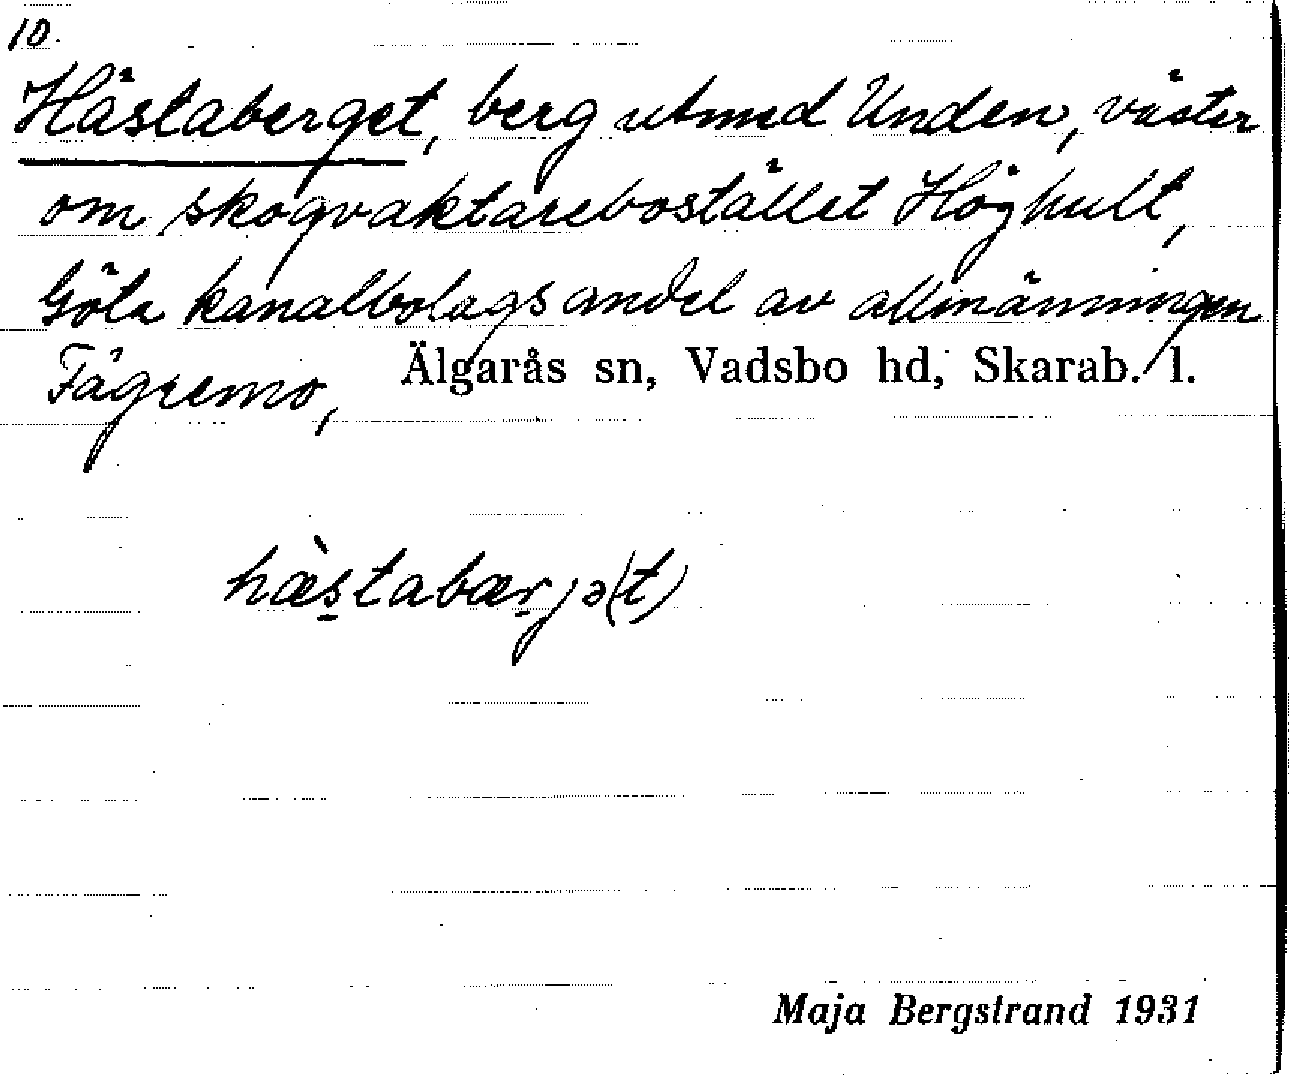 10.
Hästaberget, berg utmed Unden, väster
om skogvaktarebostället Höghult,
Göta kanalbolags andel av allmänningen
Fägremo, Älgarås sn, Vadsbo hd, Skarab. l.
hæ̀s̲tabær̲jə(t)
Maja Bergstrand 1931